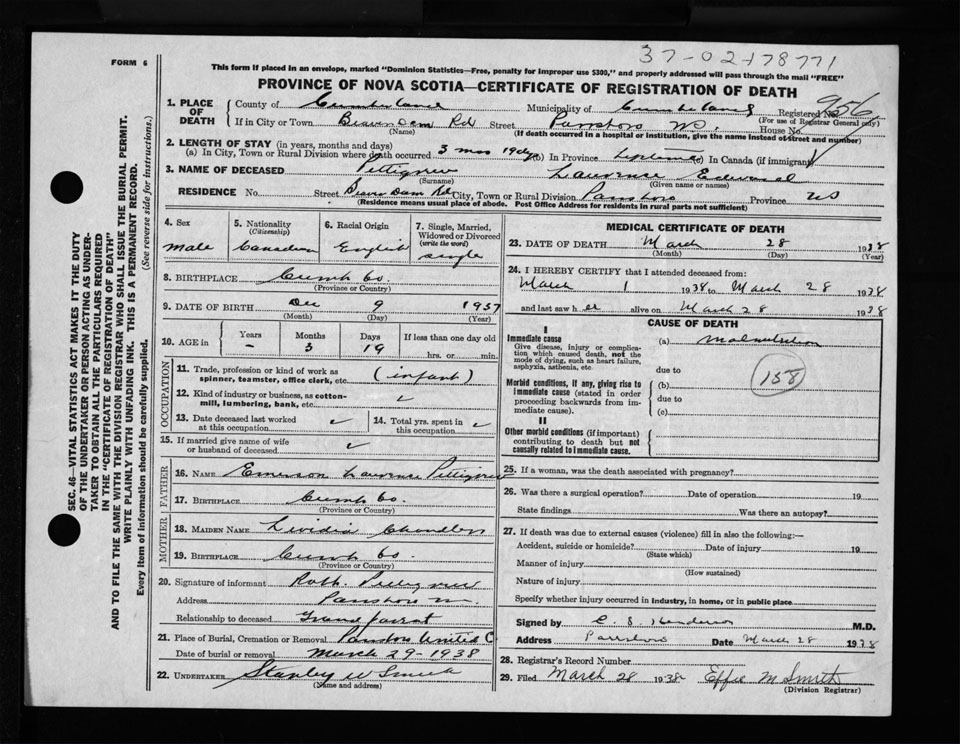 37-02-178771
FORM 6
This form if placed in an envelope, marked "Dominion Statistics—Free, penalty for improper use $300," and properly addressed will pass through the mail "FREE"
PROVINCE OF NOVA SCOTIA—CERTIFICATE OF REGISTRATION OF DEATH
1. PLACE OF DEATH
County of Cumberland Municipality of Cumberland Registered No. 956
(For use of Registrar General only)
If in City or Town Beaver Dam Rd Street Parrsboro House No.
(Name) (If death occurred in a hospital or institution, give the name instead of street and number)
2. LENGTH OF STAY (in years, months and days)
(a) In City, Town or Rural Division where death occurred 3 mos 19 dys (b) In Province In Canada (if immigrant)
3. NAME OF DECEASED Pettigrew Lawrence Edward
(Surname) (Given name or names)
RESIDENCE No. Street Beaver Dam Rd City, Town or Rural Division Parrsboro Province NS
(Residence means usual place of abode. Post Office Address for residents in rural parts not sufficient)
4. Sex
male
5. Nationality (Citizenship)
Canadian
6. Racial Origin
English
7. Single, Married, Widowed or Divorced (write the word)
single
8. BIRTHPLACE Cumb Co.
(Province or Country)
9. DATE OF BIRTH Dec 9 1937
(Month) (Day) (Year)
10. AGE in Years Months Days If less than one day old
- 3 19 hrs. or min.
OCCUPATION
11. Trade, profession or kind of work as spinner, teamster, office clerk, etc. (infant)
12. Kind of industry or business, as cotton-mill, lumbering, bank, etc. ✓
13. Date deceased last worked at this occupation ✓
14. Total yrs. spent in this occupation ✓
15. If married give name of wife or husband of deceased ✓
FATHER
16. NAME Emerson Lawrence Pettigrew
17. BIRTHPLACE Cumb Co.
(Province or Country)
MOTHER
18. MAIDEN NAME
19. BIRTHPLACE Cumb Co.
(Province or Country)
20. Signature of informant Pettigrew
Address Parrsboro
Relationship to deceased Grand parent
21. Place of Burial, Cremation or Removal Parrsboro United C
Date of burial or removal March 29-1938
22. UNDERTAKER Stanley W Smith
(Name and address)
MEDICAL CERTIFICATE OF DEATH
23. DATE OF DEATH March 28 1938
(Month) (Day) (Year)
24. I HEREBY CERTIFY that I attended deceased from:
March 1 1938 to March 28 1938
and last saw h alive on March 28 1938
CAUSE OF DEATH
I
Immediate cause
Give disease, injury or complication which caused death, not the mode of dying, such as heart failure, asphyxia, asthenia, etc.
(a) Malnutrition
due to
(158)
Morbid conditions, if any, giving rise to immediate cause (stated in order proceeding backwards from immediate cause).
(b)
due to
(c)
II
Other morbid conditions (if important) contributing to death but not causally related to immediate cause.
25. If a woman, was the death associated with pregnancy?
26. Was there a surgical operation? Date of operation 19
State findings Was there an autopsy?
27. If death was due to external causes (violence) fill in also the following:—
Accident, suicide or homicide? Date of injury 19
(State which)
Manner of injury
(How sustained)
Nature of injury
Specify whether injury occurred in industry, in home, or in public place
Signed by C. S. Henderson M.D.
Address Parrsboro Date March 28 1938
28. Registrar's Record Number
29. Filed March 28 1938 Effie M Smith
(Division Registrar)
SEC. 46—VITAL STATISTICS ACT MAKES IT THE DUTY
OF THE UNDERTAKER OR PERSON ACTING AS UNDER-
TAKER TO OBTAIN ALL THE PARTICULARS REQUIRED
IN THE "CERTIFICATE OF REGISTRATION OF DEATH"
AND TO FILE THE SAME WITH THE DIVISION REGISTRAR WHO SHALL ISSUE THE BURIAL PERMIT.
WRITE PLAINLY WITH UNFADING INK. THIS IS A PERMANENT RECORD.
Every item of information should be carefully supplied. (See reverse side for instructions.)